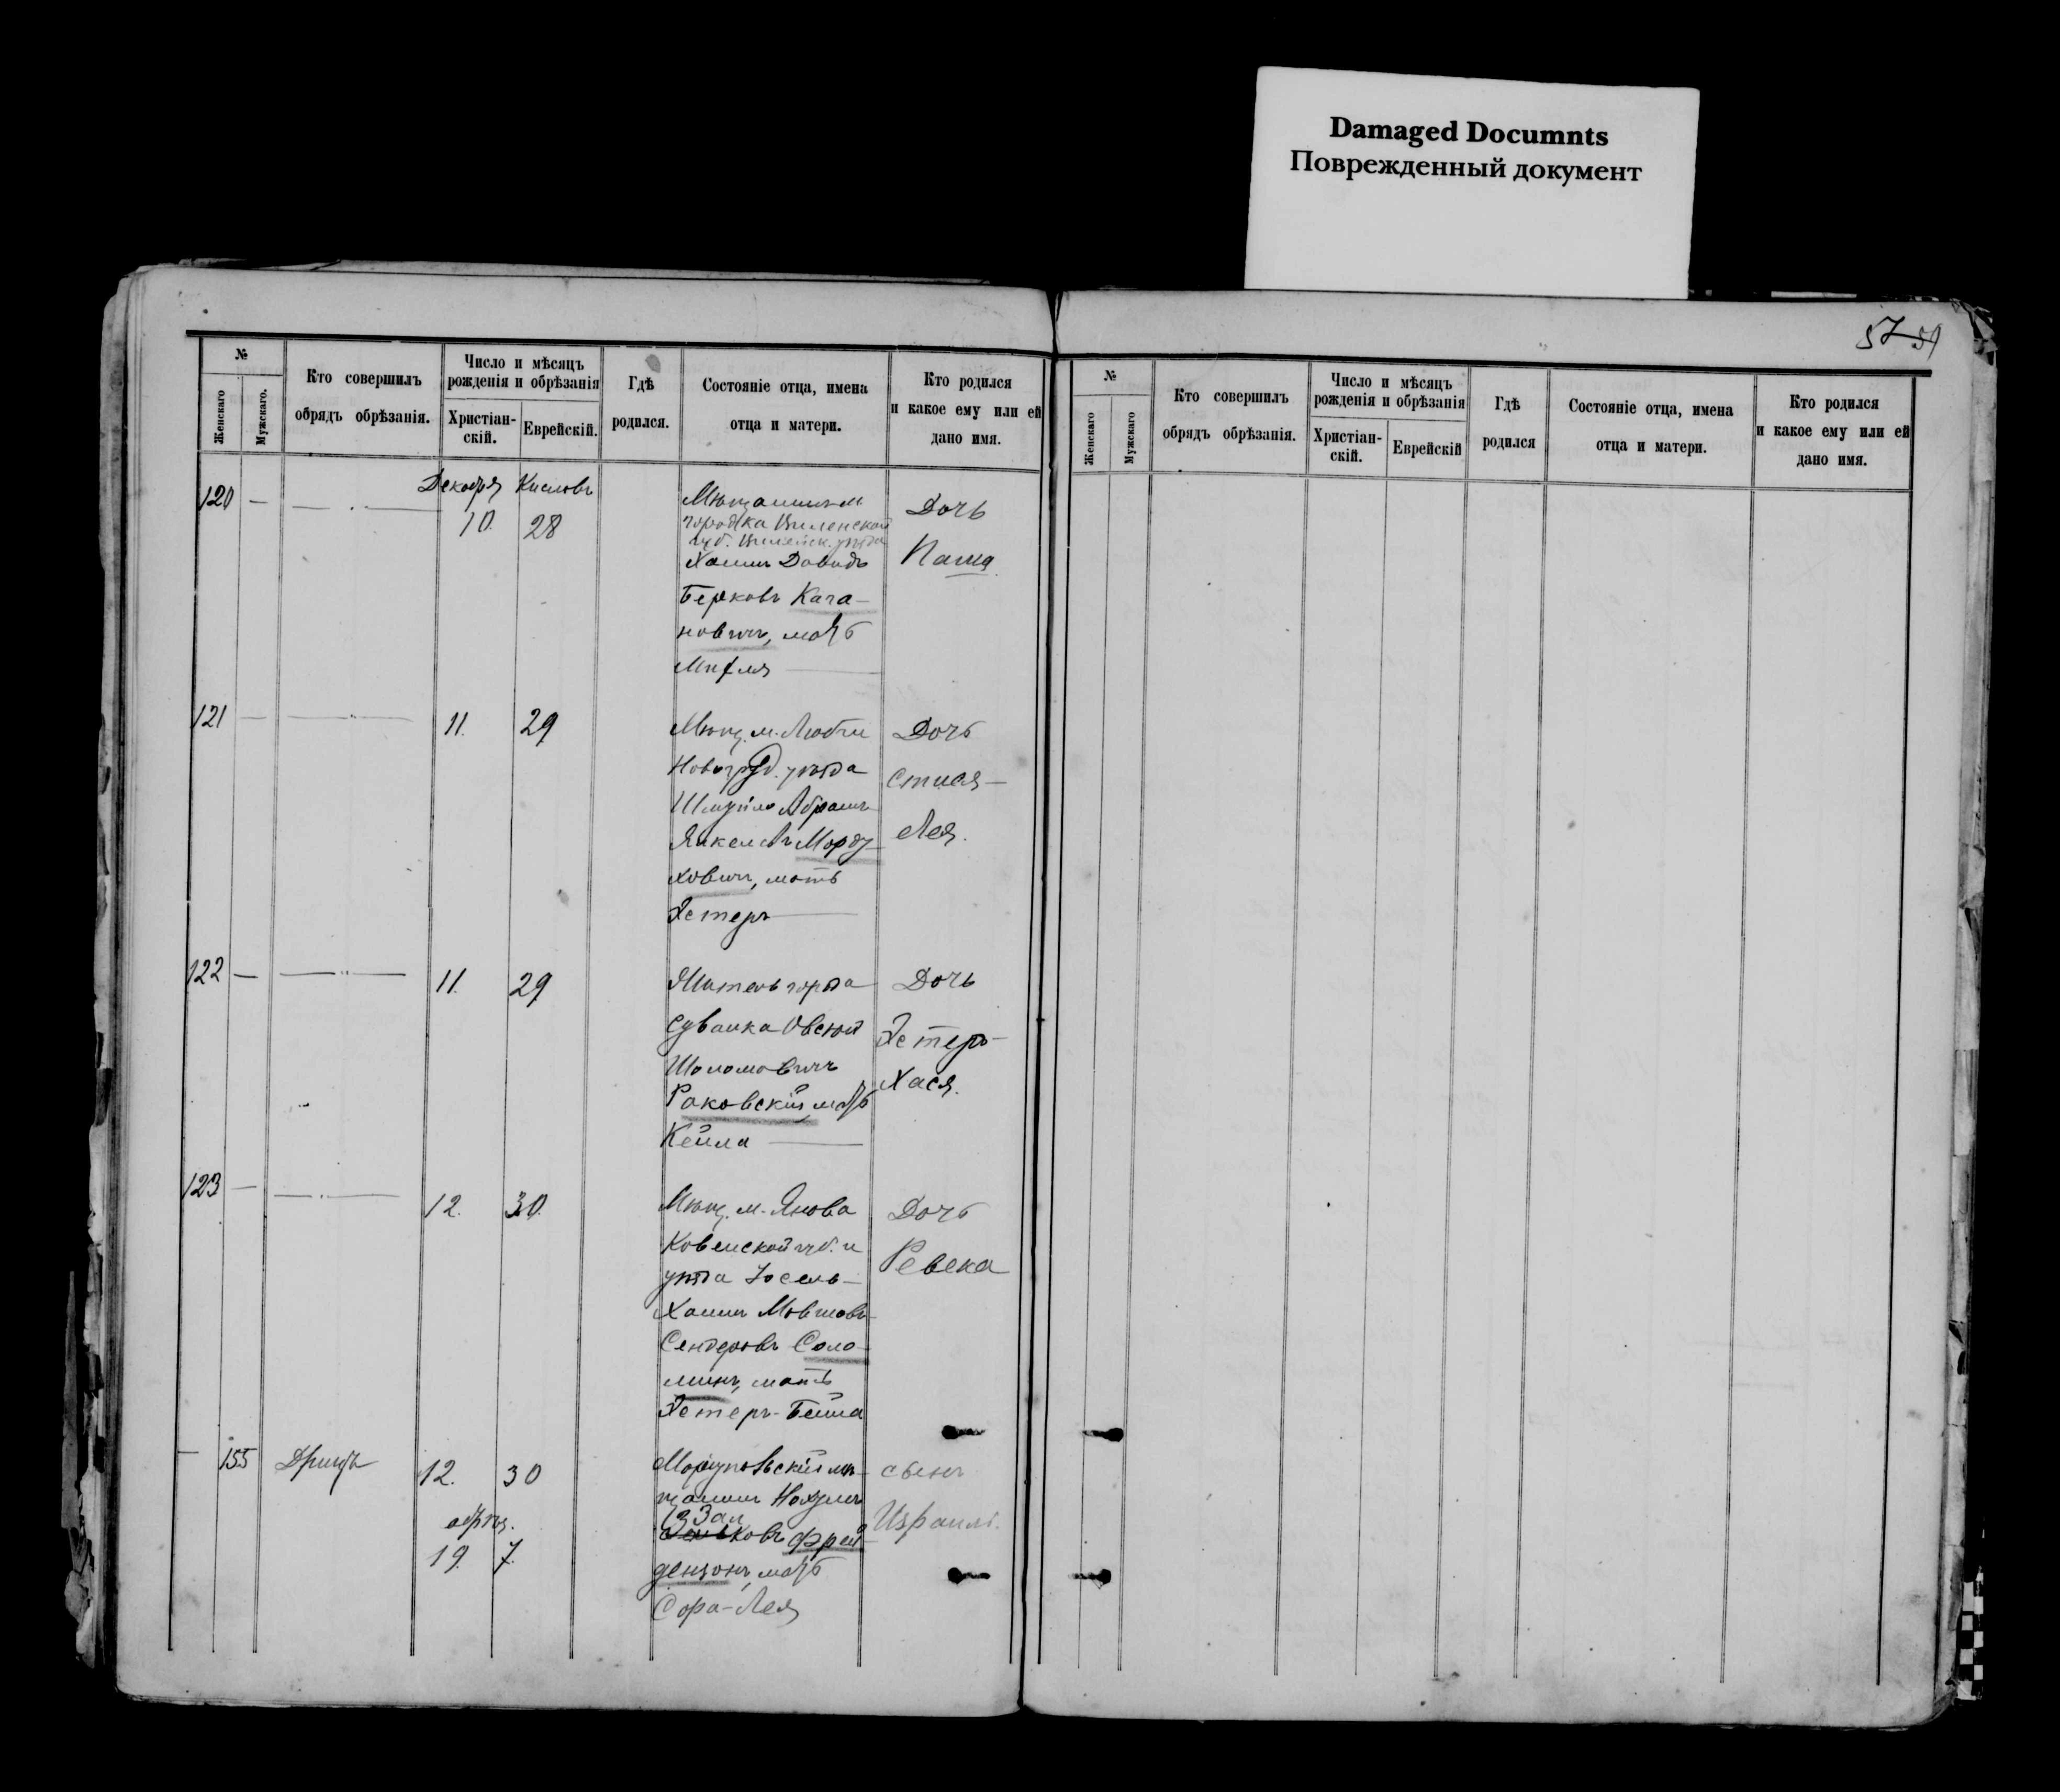 Damaged Documnts
Поврежденный документ
57 59
№
Женскаго
Мужскаго.
Кто совершилъ
обрядъ обрѣзанія.
Число и мѣсяцъ
рожденія и обрѣзанія
Христіан-
скій.
Еврейскій.
Гдѣ
родился.
Состояніе отца, имена
отца и матери.
Кто родился
и какое ему или ей
дано имя.
120 —
Декабря Кислевъ
10. 28
Мѣщанинъ м.
городка Виленской
губ. Вилейск. уѣзда
Хаимъ Довидъ
Берковъ Кага-
новичъ, мать
Дочь
Паша
121 —
11. 29
Мѣщ. м. Любчи
Новогруд. уѣзда
Шмуйло Абрамъ
Янкелевъ Морду-
ховичъ, мать
Эстеръ
Дочь
Лея.
122 —
11. 29
Житель города
Сувалка Овсей
Шоломовичъ
Раковскій мать
Кейла
Дочь
Эстеръ-
Хася.
123 —
12. 30
Мѣщ. м. Янова
Ковенской губ. и
уѣзда Іосель-
Хаимъ Мовшовъ-
Сендеровъ Соло-
минъ, мать
Эстеръ-Бейла
Дочь
Ревека
— 155
12. 30
обрѣз.
19. 7.
щанинъ Нохумъ
Зал
ковъ Фрей-
дензонъ, мать
Сора-Лея
сынъ
Израиль.
№
Женскаго
Мужскаго
Кто совершилъ
обрядъ обрѣзанія.
Число и мѣсяцъ
рожденія и обрѣзанія
Христіан-
скій.
Еврейскій
Гдѣ
родился
Состояніе отца, имена
отца и матери.
Кто родился
и какое ему или ей
дано имя.